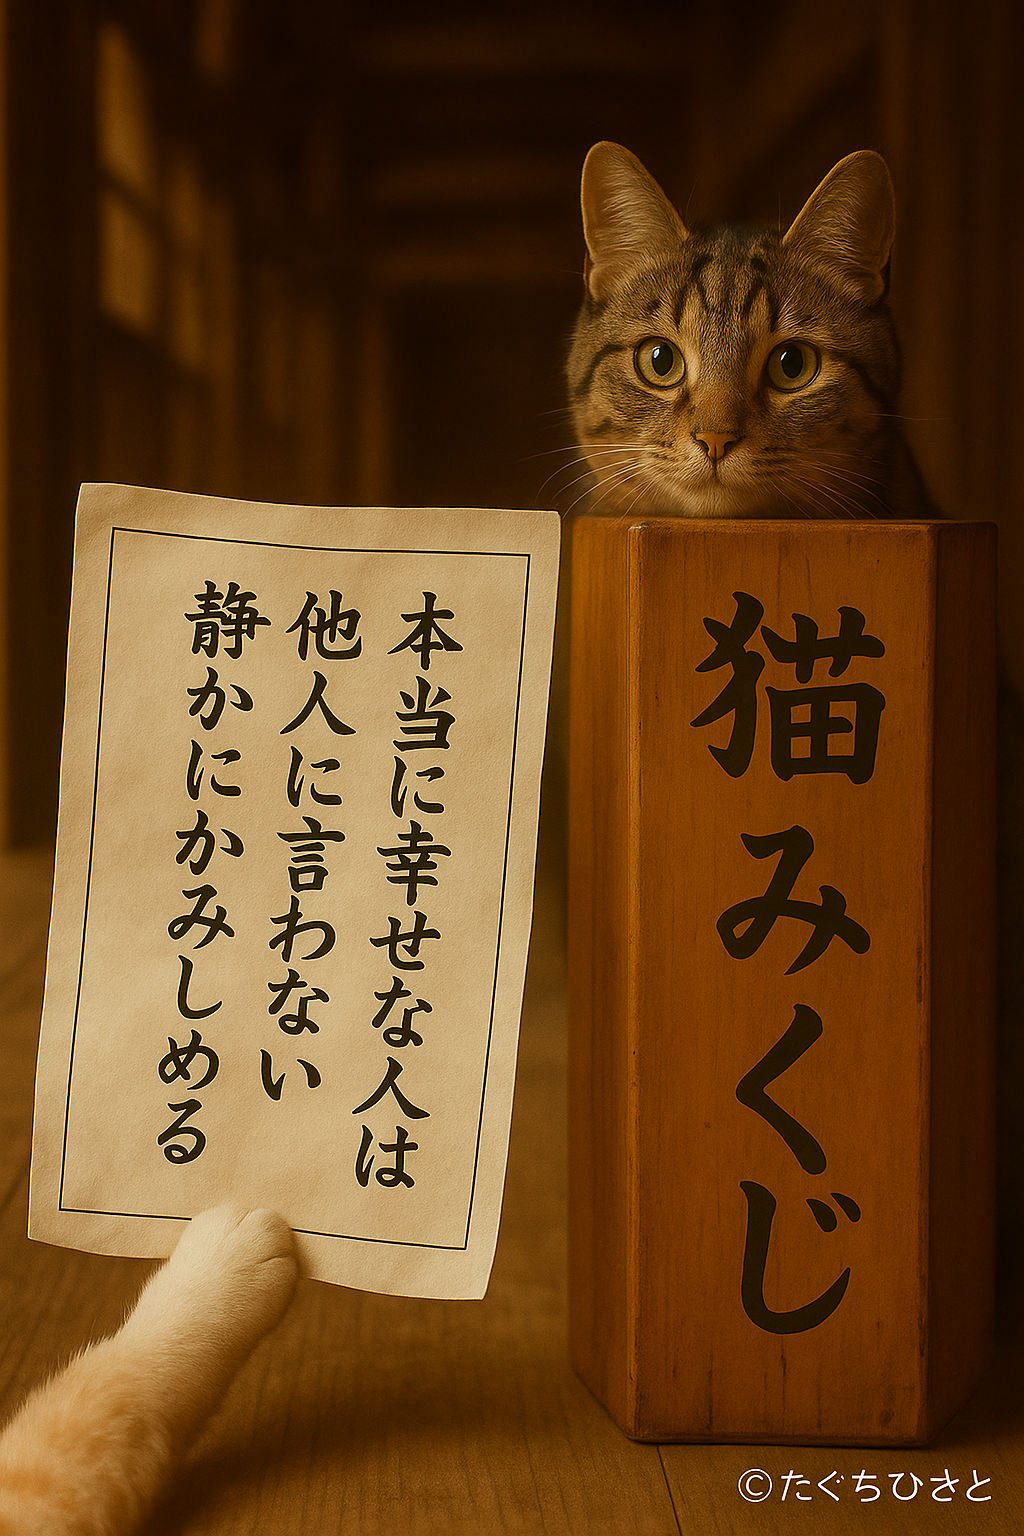 本当に幸せな人は
他人に言わない
静かにかみしめる
猫みくじ
©たぐちひさと